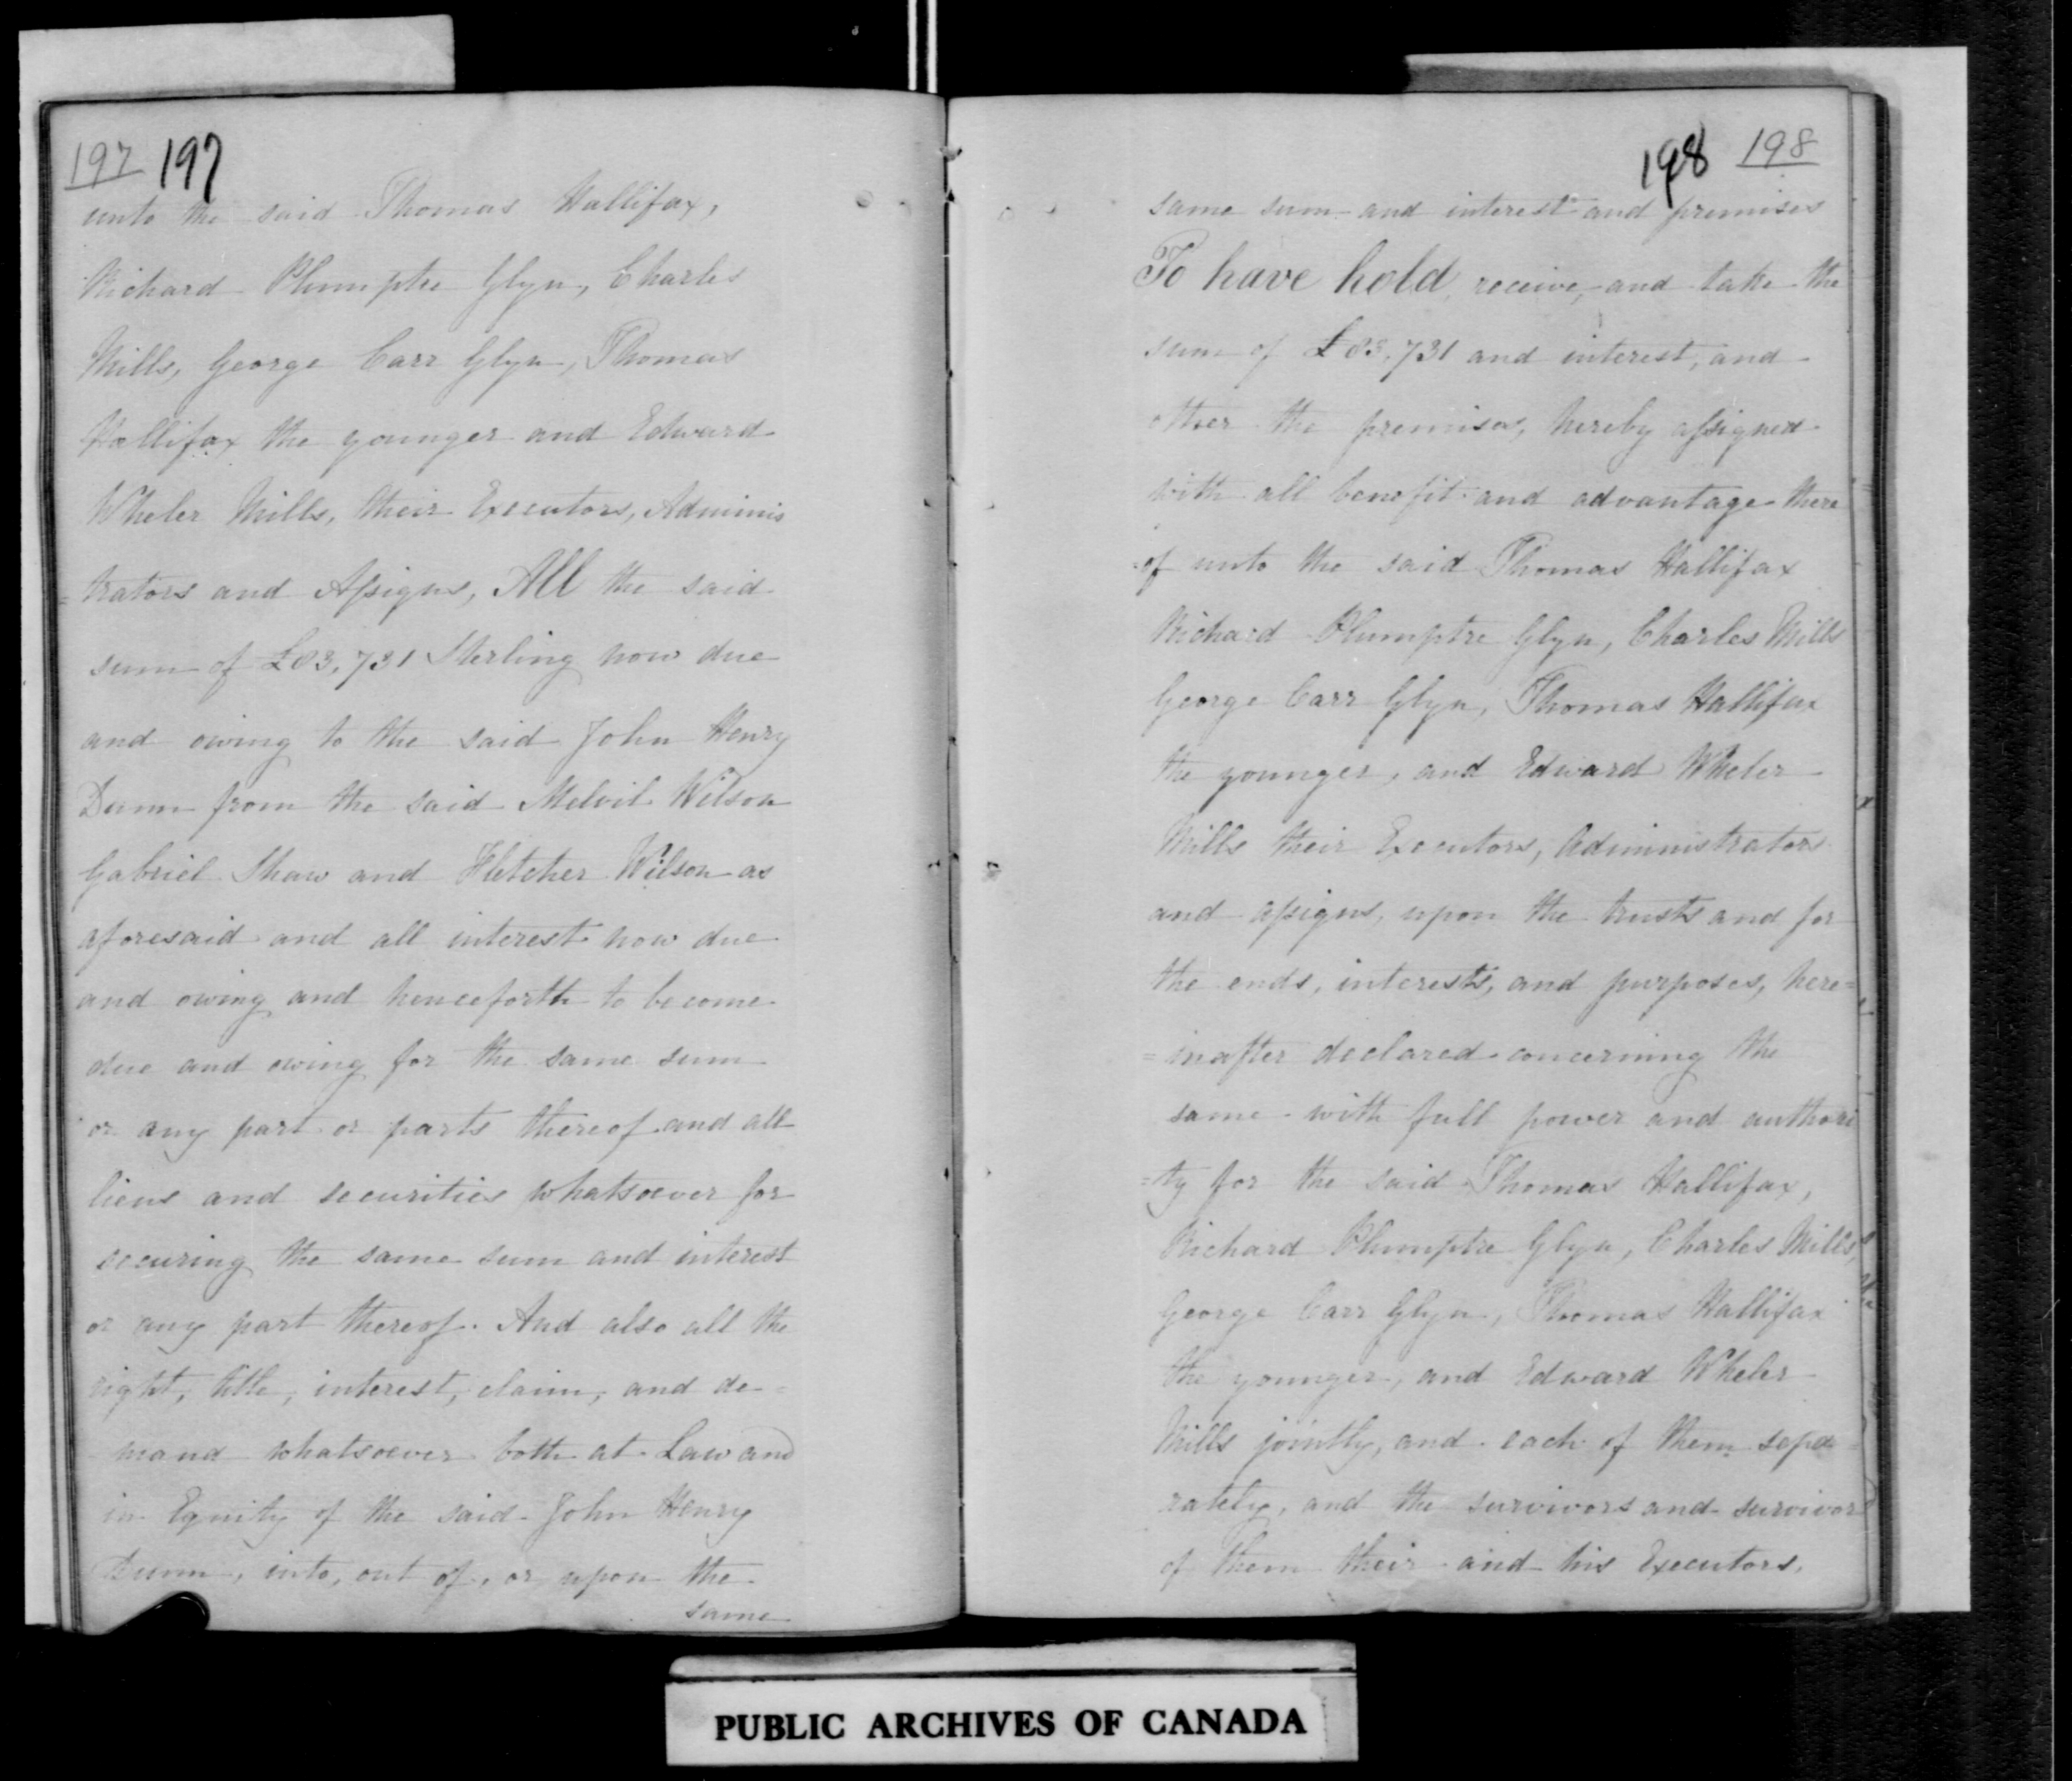 197 197
unto the said Thomas Hallifax,
Richard Plumptre Glyn, Charles
Mills, George Carr Glyn, Thomas
Hallifax the younger and Edward
Wheler Mills, their Executors, Adminis
=trators and Assigns, All the said
sum of £83,731 Sterling now due
and owing to the said John Henry
Dunn from the said Melvil Wilson
Gabriel Shaw and Fletcher Wilson as
aforesaid and all interest now due
and owing and henceforth to become
due and owing for the same sum
or any part or parts thereof and all
liens and securities whatsoever for
securing the same sum and interest
or any part thereof. And also all the
right, title, interest, claim, and de=
mand whatsoever both at Law and
in Equity of the said John Henry
Dunn, into, out of, or upon the
same
198 198
same sum and interest and premises
To have hold, receive, and take the
sum of £83,731 and interest, and
other the premises, hereby assigned
with all benefit and advantage there
=of unto the said Thomas Hallifax
Richard Plumptre Glyn, Charles Mills
George Carr Glyn, Thomas Hallifax
the younger, and Edward Wheler
Mills their Executors, Administrators
and assigns, upon the trusts and for
the ends, interests, and purposes, here=
=inafter declared concerning the
same with full power and authori
=ty for the said Thomas Hallifax,
Richard Plumptre Glyn, Charles Mills,
George Carr Glyn, Thomas Hallifax
the younger, and Edward Wheler
Mills jointly, and each of them sepa=
rately, and the survivors and survivor
of them their and his Executors,
PUBLIC ARCHIVES OF CANADA